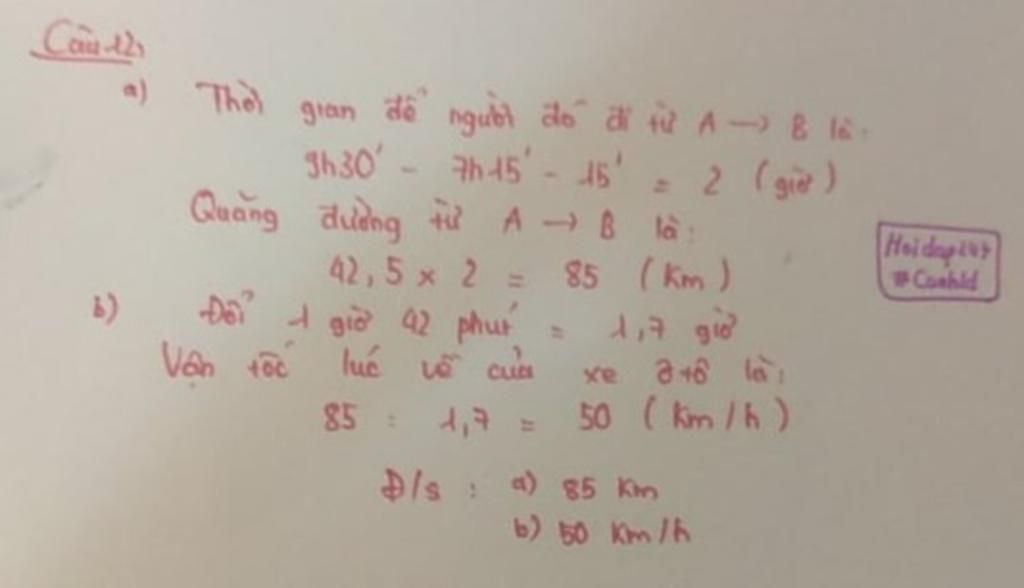 Câu 12,
a) Thời gian để người đó đi từ A → B là:
9h30' - 7h15' - 15' = 2 (giờ)
Quãng đường từ A → B là:
42,5 x 2 = 85 (Km)
b) Đổi 1 giờ 42 phút = 1,7 giờ
Vận tốc lúc về của xe ô tô là:
85 : 1,7 = 50 (Km/h)
Đ/s : a) 85 Km
b) 50 Km/h
Hoidap247